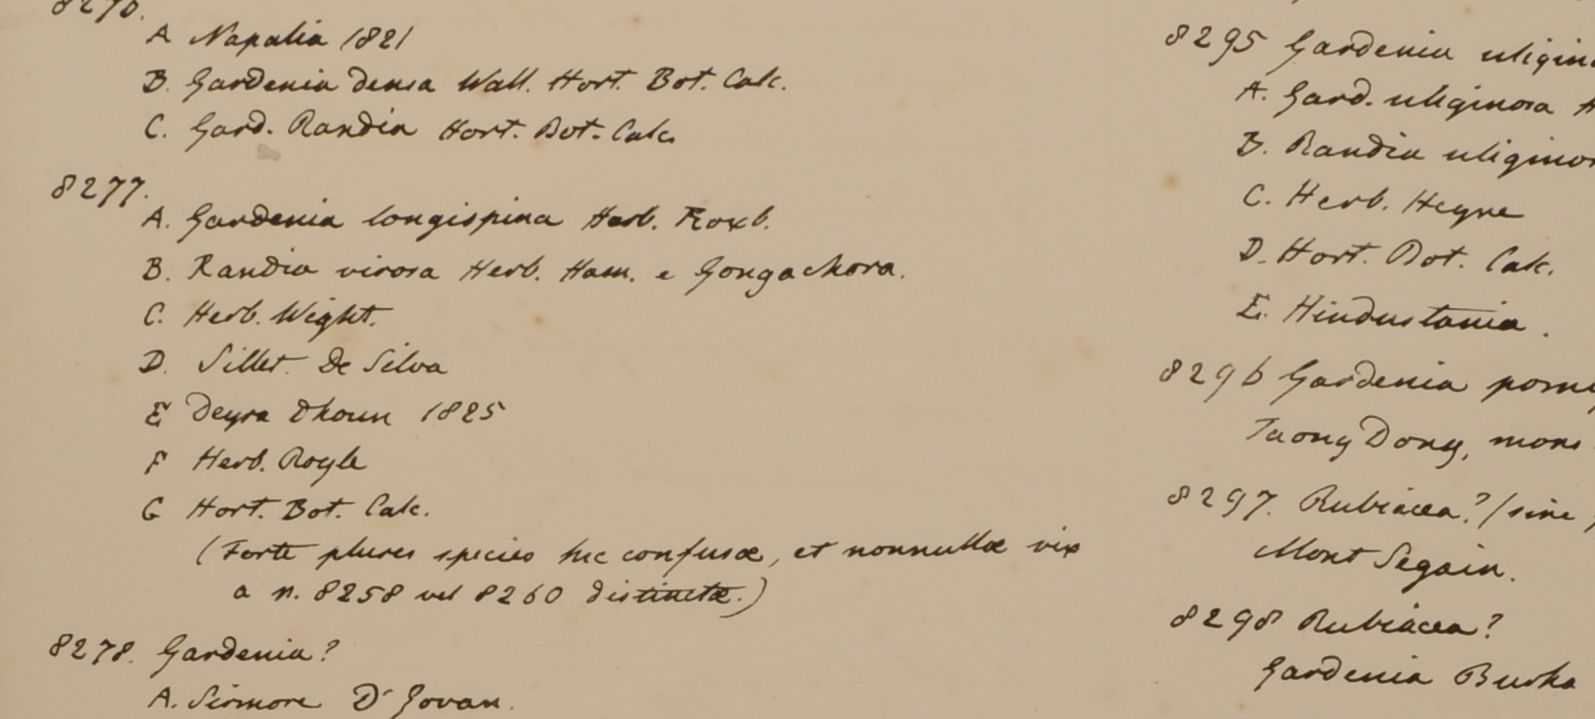 8276.
A Napalia 1821
B. Gardenia densa Wall. Hort. Bot. Calc.
C. Gard. Randia Hort. Bot. Calc.
8277.
A. Gardenia longispina Herb. Roxb.
B. Randia virosa Herb. Ham. e Gongachora.
C. Herb. Wight.
D. Sillet. De Silva
E Deyra Dhoun 1825
F Herb. Royle
G Hort. Bot. Calc.
(Forte plures species hic confusæ, et nonnullæ vix
a n. 8258 vel 8260 distinctæ.)
8278. Gardenia?
A. Sirmore Dr Govan.
8295 Gardenia uligin
A. Gard. uliginosa
B. Randia uliginos
C. Herb. Heyne
D. Hort. Bot. Calc.
E. Hindustania.
8296 Gardenia pome
Taong Dong, mons
8297. Rubiacea? (sine
Mont Segain.
8298 Rubiacea?
Gardenia